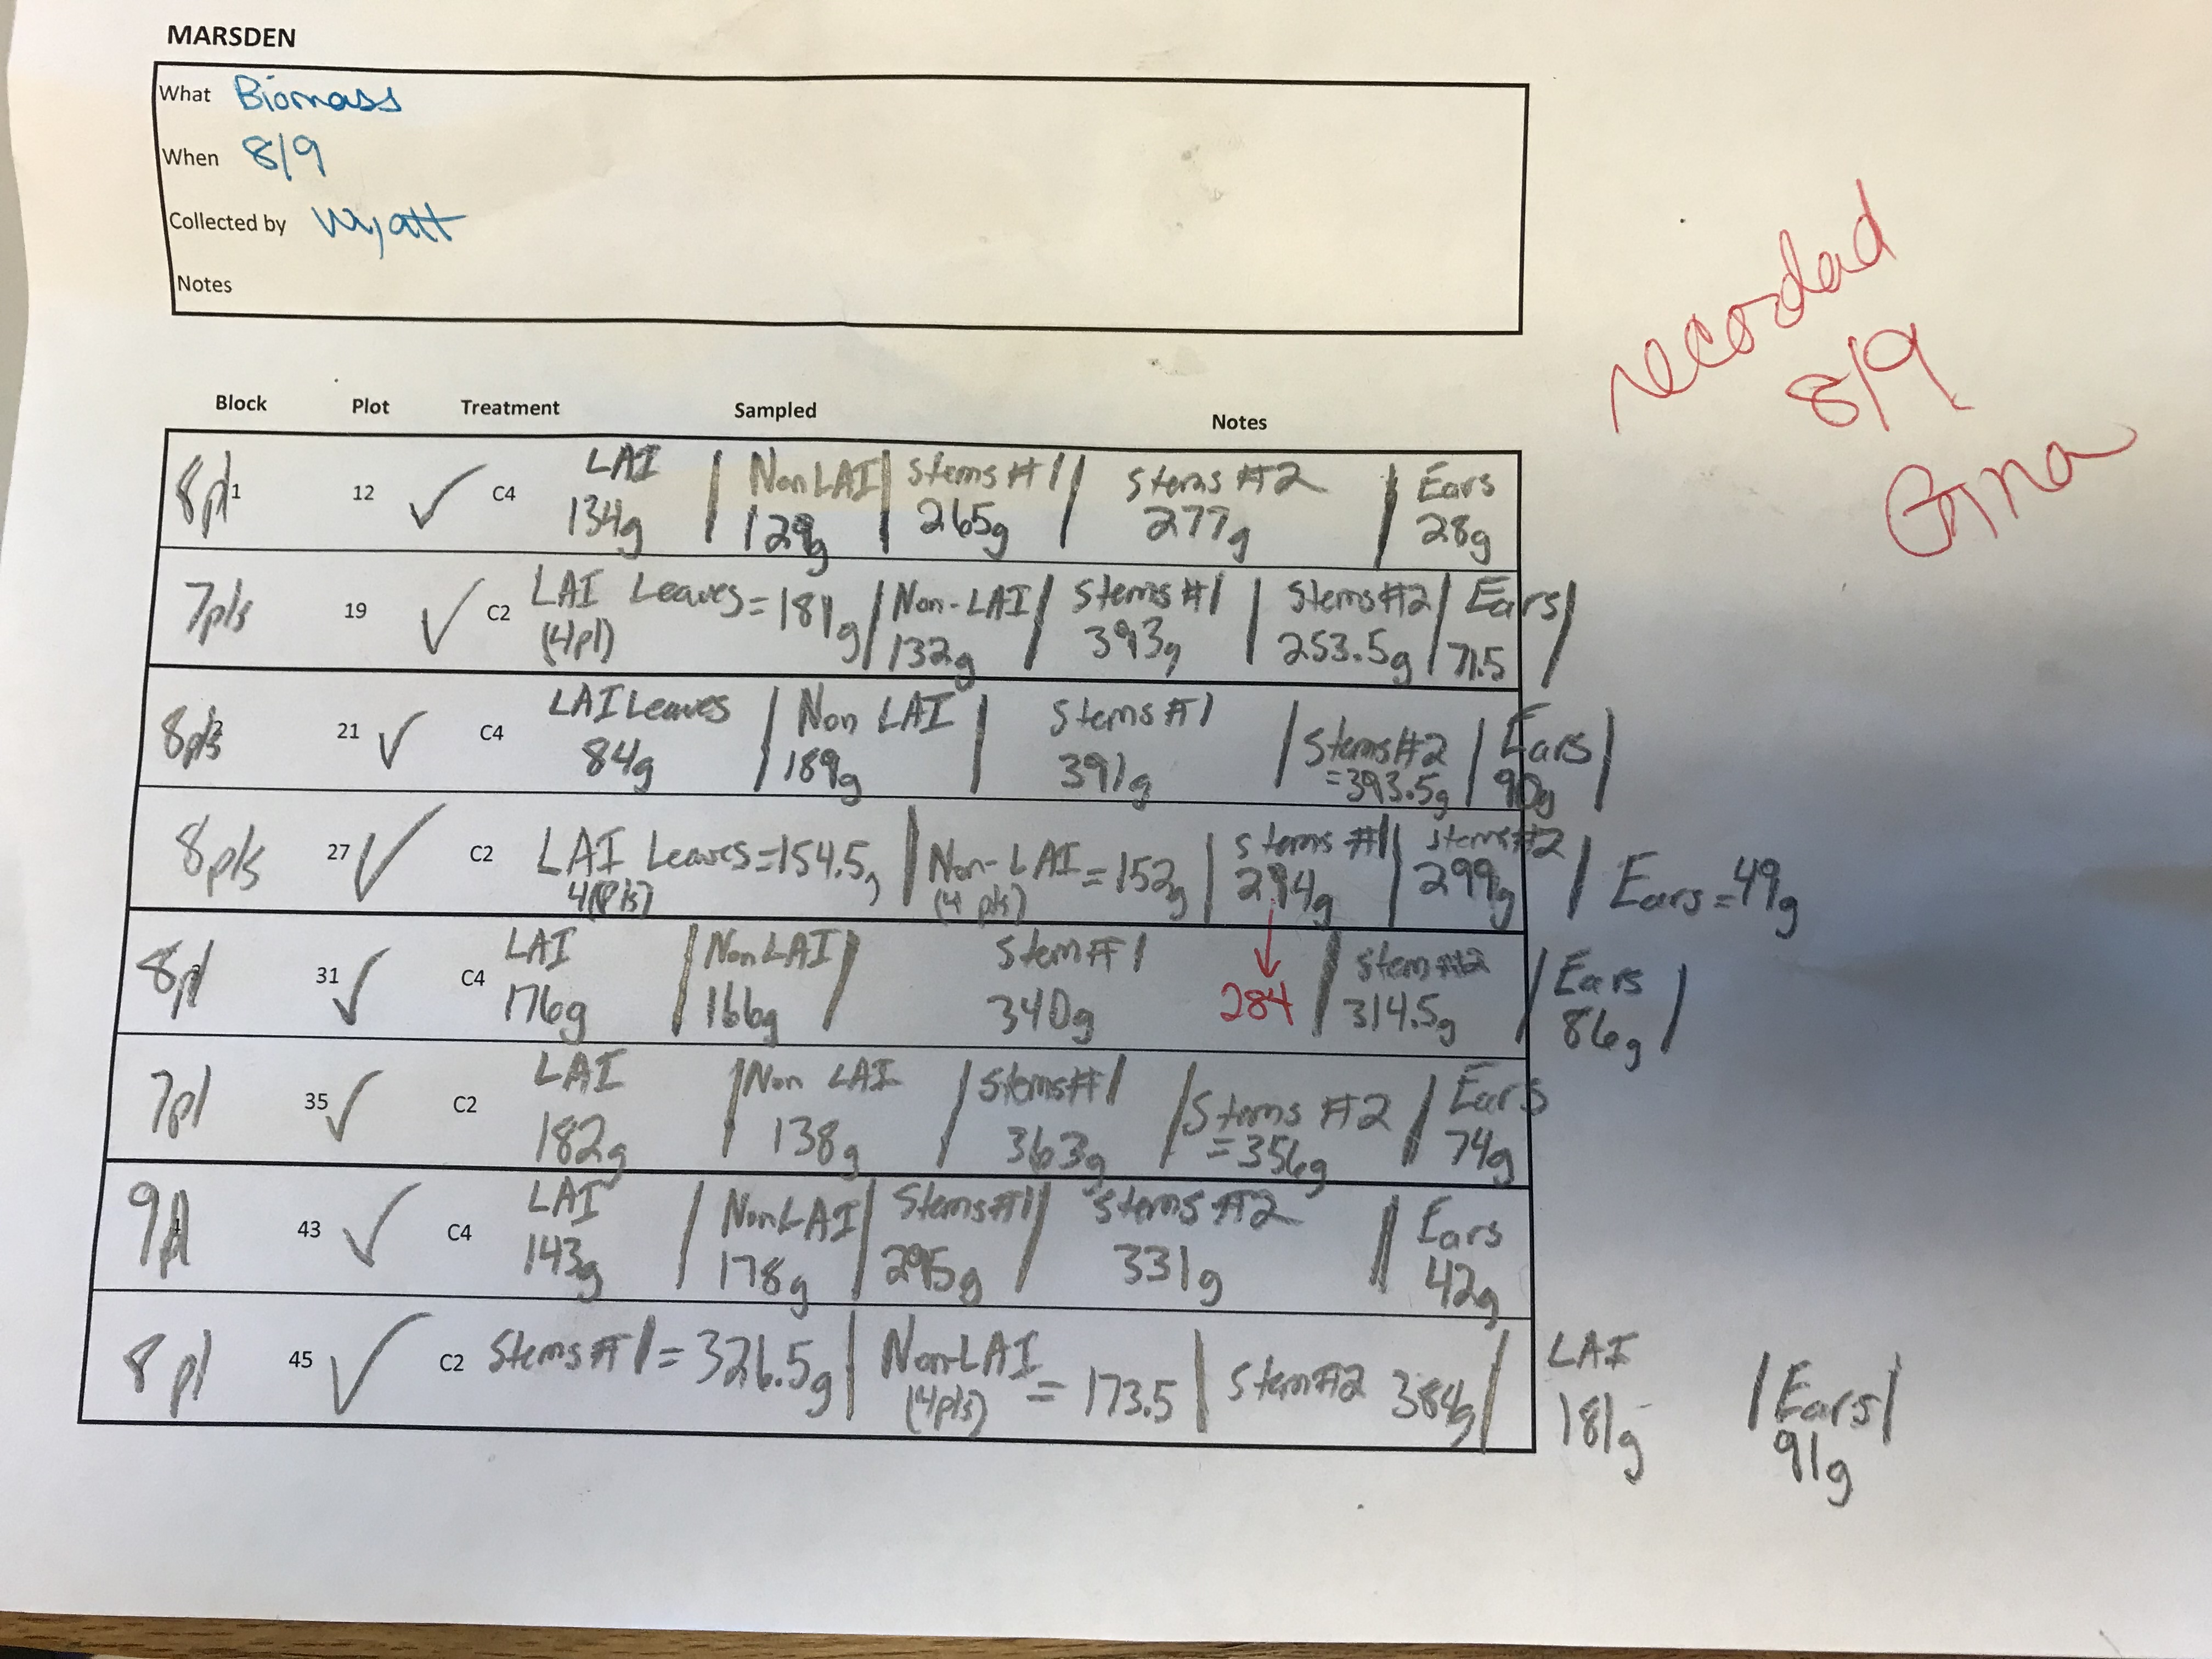 MARSDEN
What Biomass
When 8/9
Collected by Wyatt
Notes
recorded
8/9
Gina
Block Plot Treatment Sampled Notes
8pl 1 12 ✓ C4 LAI 134g | Non LAI 129g | Stems #1 265g | Stems #2 277g | Ears 28g
7pls 19 ✓ C2 LAI Leaves = 181g (4pl) | Non-LAI 132g | Stems #1 393g | Stems #2 253.5g | Ears 71.5 |
8pls 2 21 ✓ C4 LAI Leaves 84g | Non LAI 189g | Stems #1 391g | Stems #2 = 393.5g | Ears 90g |
8pls 27 ✓ C2 LAI Leaves = 154.5g 4(pls) | Non-LAI = 152g (4 pls) | Stems #1 294g | Stems #2 299g | Ears = 49g
284
8pl 31 ✓ C4 LAI 176g | Non LAI 166g | Stem #1 340g | Stem #2 314.5g | Ears 86g |
7pl 35 ✓ C2 LAI 182g | Non LAI 138g | Stems #1 363g | Stems #2 = 356g | Ears 74g
9pl 43 ✓ C4 LAI 143g | Non LAI 178g | Stems #1 295g | Stems #2 331g | Ears 42g
8pl 45 ✓ C2 Stems #1 = 326.5g | Non-LAI (4pls) = 173.5 | Stem #2 384g | LAI 181g | Ears 91g |